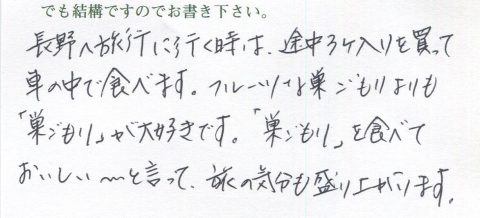 でも結構ですのでお書き下さい。
長野へ旅行に行く時は、途中3ケ入りを買って
車の中で食べます。フルーツな巣ごもりよりも
「巣ごもり」が大好きです。「巣ごもり」を食べて
おいしい〜と言って、旅の気分も盛り上がります。